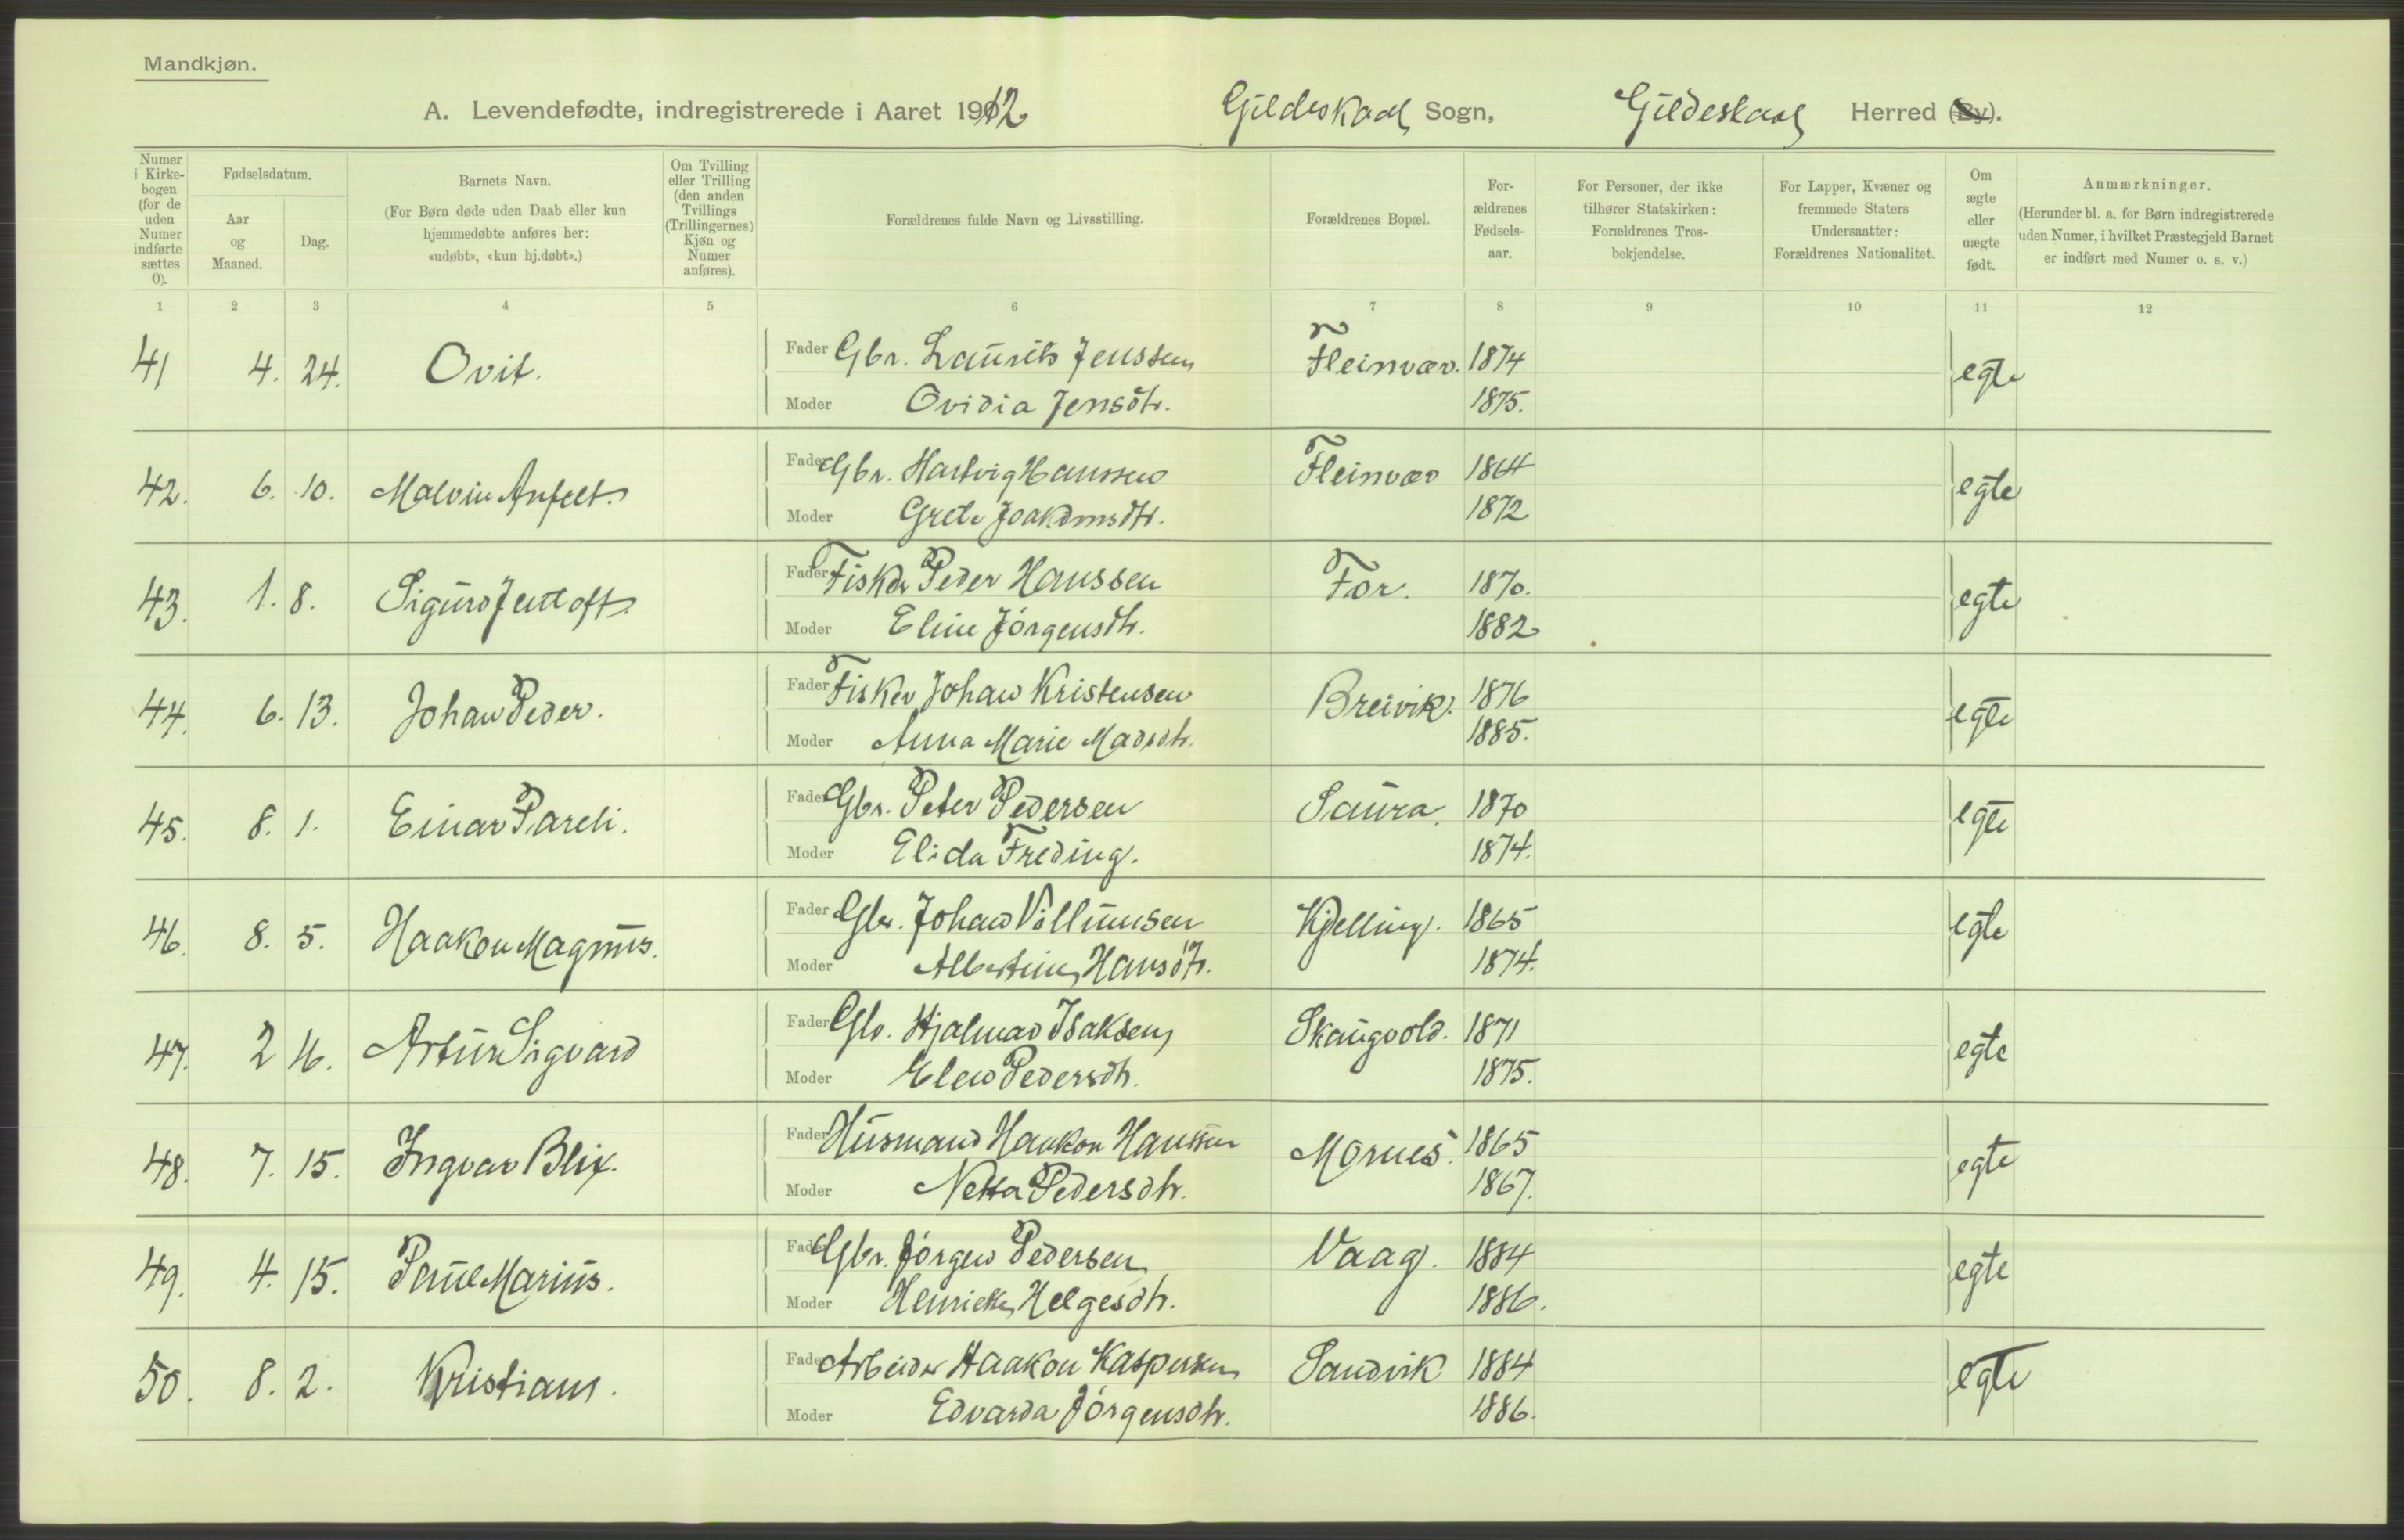 Mandkjøn.
A. Levendefødte, indregistrerede i Aaret 1912 Gildeskaal Sogn, Gildeskaal Herred (By).
Numer i Kirkebogen (for de uden Numer indførte sættes 0).
Fødselsdatum.
Aar og Maaned.
Dag.
Barnets Navn.
(For Børn døde uden Daab eller kun hjemmedøbte anføres her: «udøbt», «kun hj.døbt».)
Om Tvilling eller Trilling (den anden Tvillings (Trillingernes) Kjøn og Numer anføres).
Forældrenes fulde Navn og Livsstilling.
Forældrenes Bopæl.
Forældrenes Fødselsaar.
For Personer, der ikke tilhører Statskirken: Forældrenes Trosbekjendelse.
For Lapper, Kvæner og fremmede Staters Undersaatter: Forældrenes Nationalitet.
Om ægte eller uægte født.
Anmærkninger.
(Herunder bl. a. for Børn indregistrerede uden Numer, i hvilket Præstegjeld Barnet er indført med Numer o. s. v.)
1 2 3 4 5 6 7 8 9 10 11 12
41 4. 24. Ovit. Fader Gbr. Laurits Jenssen Fleinvær. 1874 egte
Moder Ovidia Jensdtr. 1875.
42. 6. 10. Malvin Anfelt. Fader Gbr. Hartvig Hanssen Fleinvær 1864 egte
Moder Grete Joakimsdtr. 1872
43. 1. 8. Sigurd Jentoft. Fader Fisker Peder Hanssen For. 1870. egte
Moder Eline Jørgensdtr. 1882
44. 6. 13. Johan Peder. Fader Fisker Johan Kristensen Breivik. 1876 egte
Moder Anna Marie Madsdtr. 1885.
45. 8. 1. Einar Pareli. Fader Gbr. Peter Pedersen Saura. 1870 egte
Moder Elida Freding. 1874.
46. 8. 5. Haakon Magnus. Fader Gbr. Johan Villumsen Kjelling. 1865 egte
Moder Albertine Hansdtr. 1874.
47. 2 16. Artur Sigvard Fader Gbr. Hjalmar Isaksen Skaugvold. 1871 egte
Moder Elen Pedersdtr. 1875.
48. 7. 15. Ingvar Blix. Fader Husmand Haakon Hanssen Mørnes. 1865 egte
Moder Netta Pedersdtr. 1867.
49. 4. 15. Paul Marius. Fader Gbr. Jørgen Pedersen Vaag. 1884 egte
Moder Henrikke Helgesdtr. 1886.
50. 8. 2. Kristian. Fader Arbeider Haakon Kaspersen Sandvik 1884 egte
Moder Edvarda Jørgensdtr. 1886.